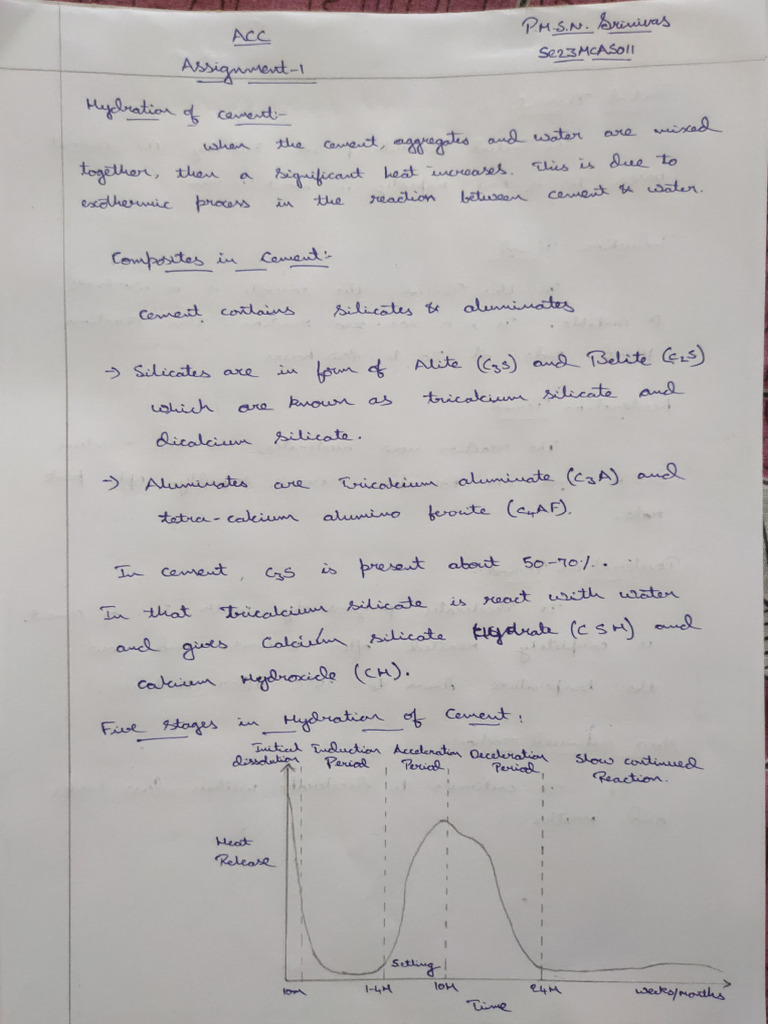 ACC
P.M.S.N. Srinivas
SE23MCAS011
Assignment-1
Hydration of cement:-
When the cement, aggregates and water are mixed
together, then a significant heat increases. This is due to
exothermic process in the reaction between cement & water.
Composites in Cement:-
cement contains silicates & aluminates
→ Silicates are in form of Alite (C3S) and Belite (C2S)
which are known as tricalcium silicate and
dicalcium silicate.
→ Aluminates are Tricalcium aluminate (C3A) and
tetra-calcium alumino ferrite (C4AF).
In cement, C3S is present about 50-70%.
In that Tricalcium silicate is react with water
and gives Calcium silicate Hydrate (CSH) and
calcium Hydroxide (CH).
Five stages in Hydration of Cement:
Initial dissolution
Induction Period
Acceleration Period
Deceleration Period
Slow continued Reaction.
Heat
Release
Setting
10m
1-4H
10H
24H
weeks/months
Time